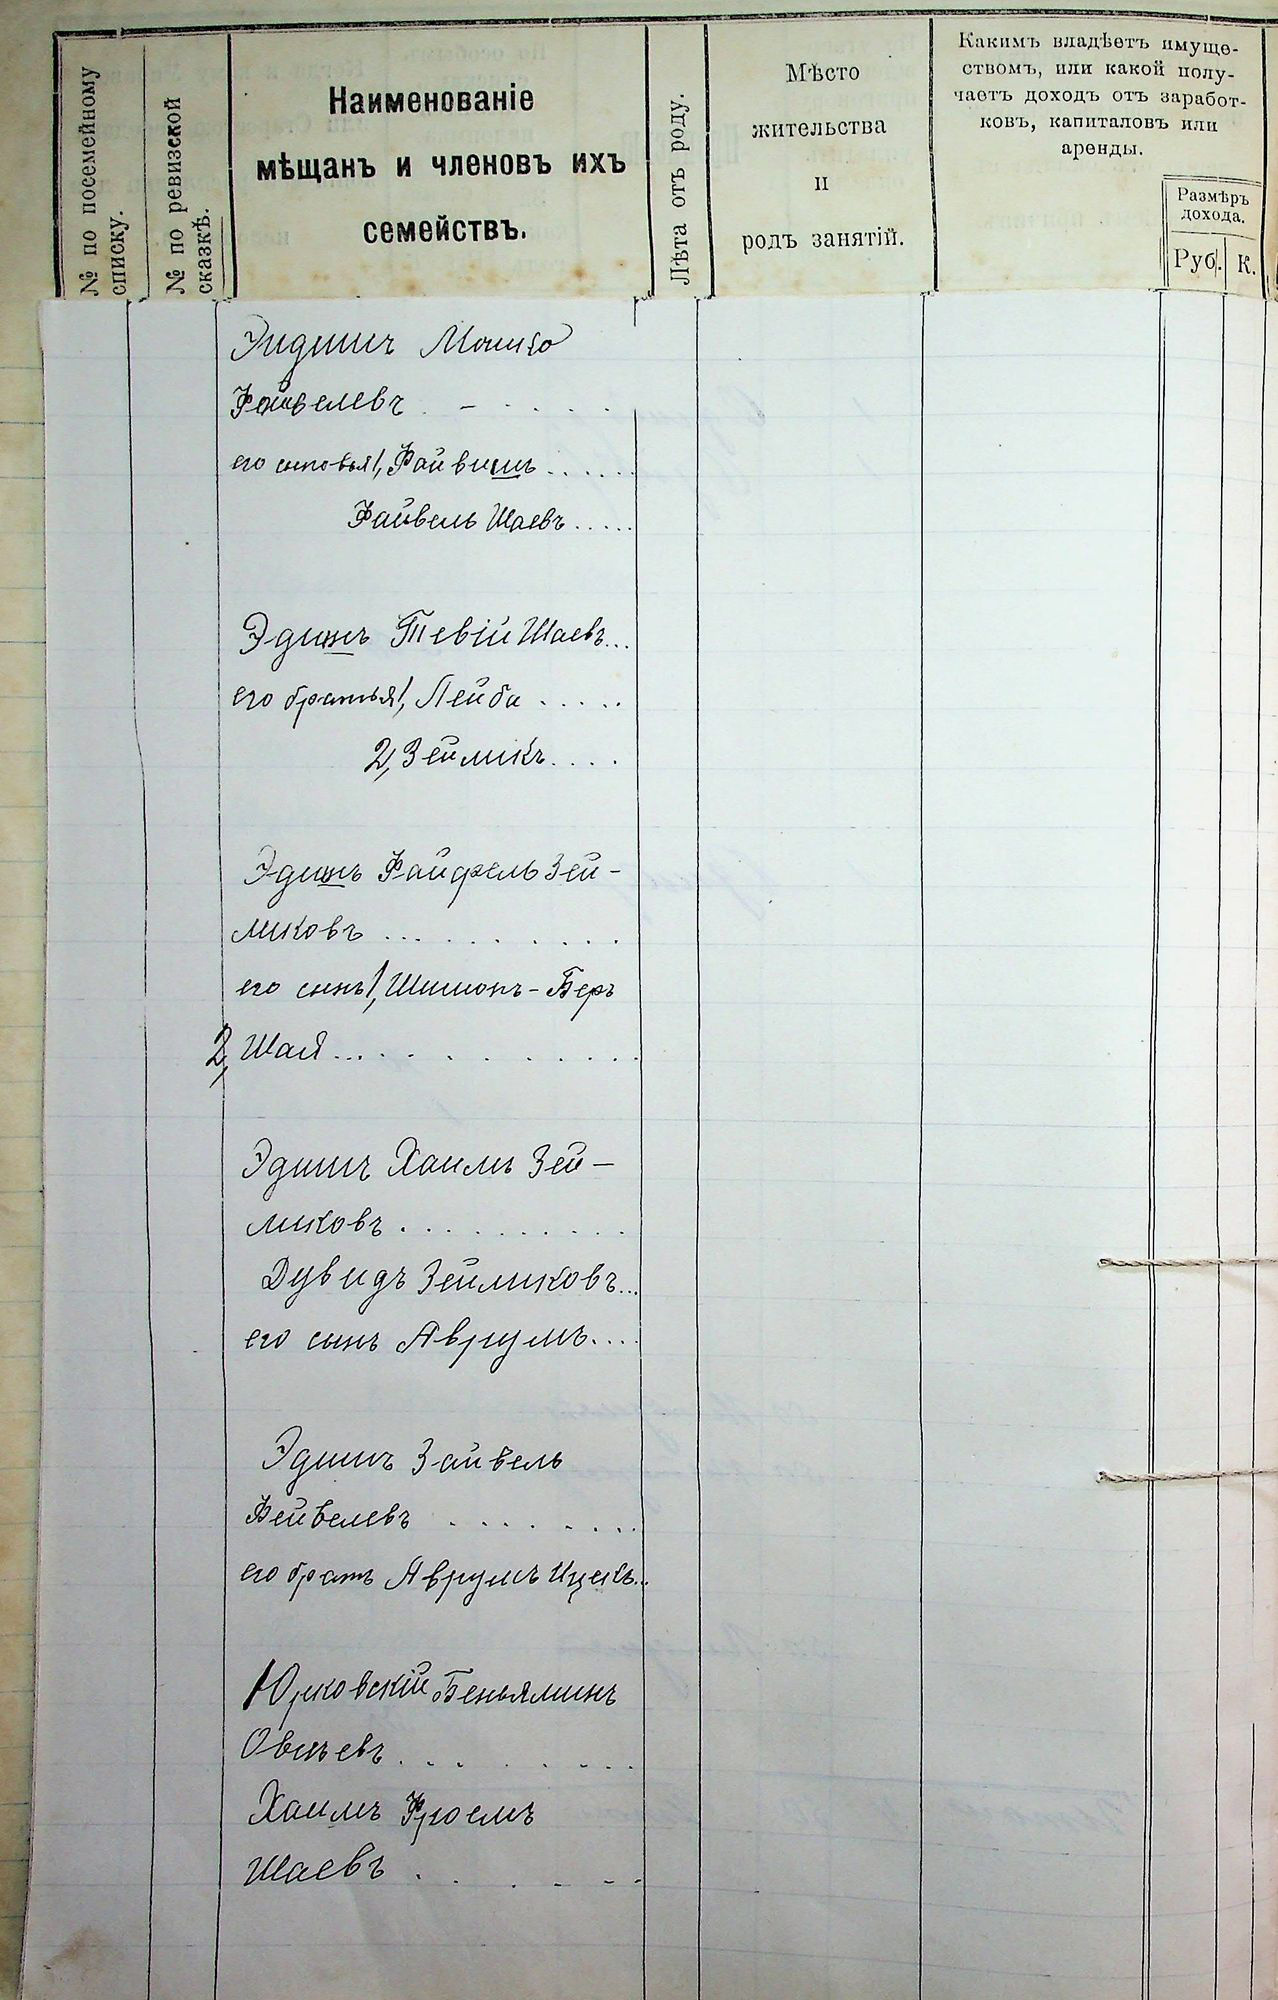 № по посемейному
списку.
№ по ревизской
сказкѣ.
Наименованіе
мѣщанъ и членовъ ихъ
семействъ.
Лѣта отъ роду.
Мѣсто
жительства
и
родъ занятій.
Какимъ владѣетъ имуще-
ствомъ, или какой полу-
чаетъ доходъ отъ заработ-
ковъ, капиталовъ или
аренды.
Размѣръ
дохода.
Руб. К.
Мошко
Файвелевъ . - . . . . .
его сыновья 1, Файвишъ . . . . .
Файвель Шаевъ . . . . .
Эдишъ Тевій Шаевъ...
его братья 1, Лейба . . . . .
2, Зейликъ . . . .
Эдишъ Файфель Зей-
ликовъ . . . . . . . . . .
его сынъ 1, Шимонъ-Беръ
2, Шая . . . . . . . . . .
Эдишъ Хаимъ Зей-
ликовъ . . . . . . . . . .
Дувидъ Зейликовъ...
его сынъ Аврумъ....
Эдишъ Зайвель
Фейвелевъ . . . . . . . .
его братъ Аврумъ Ицекъ...
Юрковскій Беньяминъ
Овсѣевъ . . . . . . . .
Хаимъ Фроемъ
Шаевъ . . . . . . .